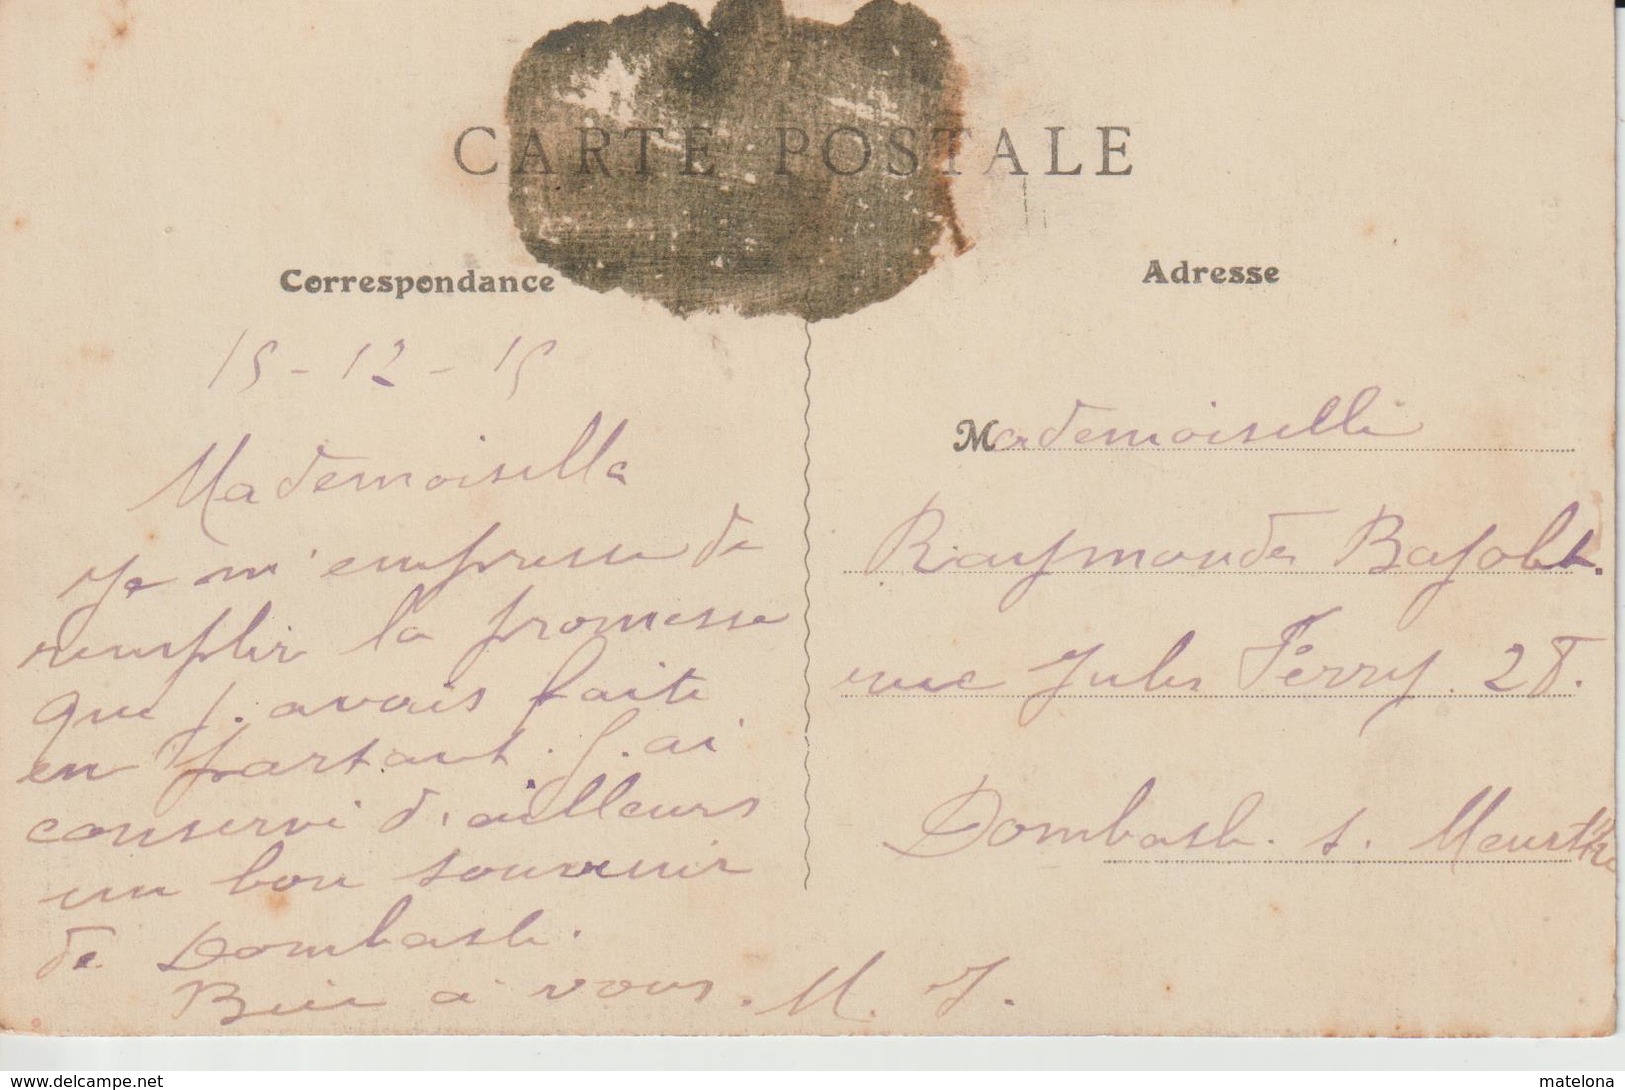 CARTE POSTALE
Correspondance
15-12-15
Mademoiselle
Je m'empresse de
remplir la promesse
que j'avais faite
en partant. J'ai
conservé d'ailleurs
un bon souvenir
de Dombasle.
Bien à vous. M. J.
Adresse
Mademoiselle
Raymonde Bajolet.
rue Jules Ferry. 28.
Dombasle. s. Meurthe
www.delcampe.net
matelona